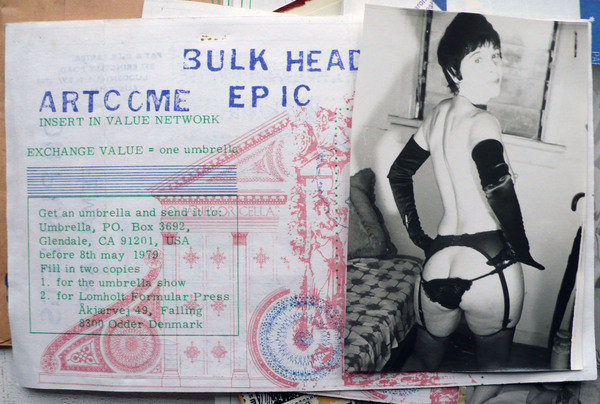 BULK HEAD
ARTCCME EPIC
INSERT IN VALUE NETWORK
EXCHANGE VALUE = one umbrella
Get an umbrella and send it to:
Umbrella, PO. Box 3692,
Glendale, CA 91201, USA
before 8th may 1979
Fill in two copies
1. for the umbrella show
2. for Lomholt Formular Press
Åkjærvej 49, Falling
8300 Odder Denmark